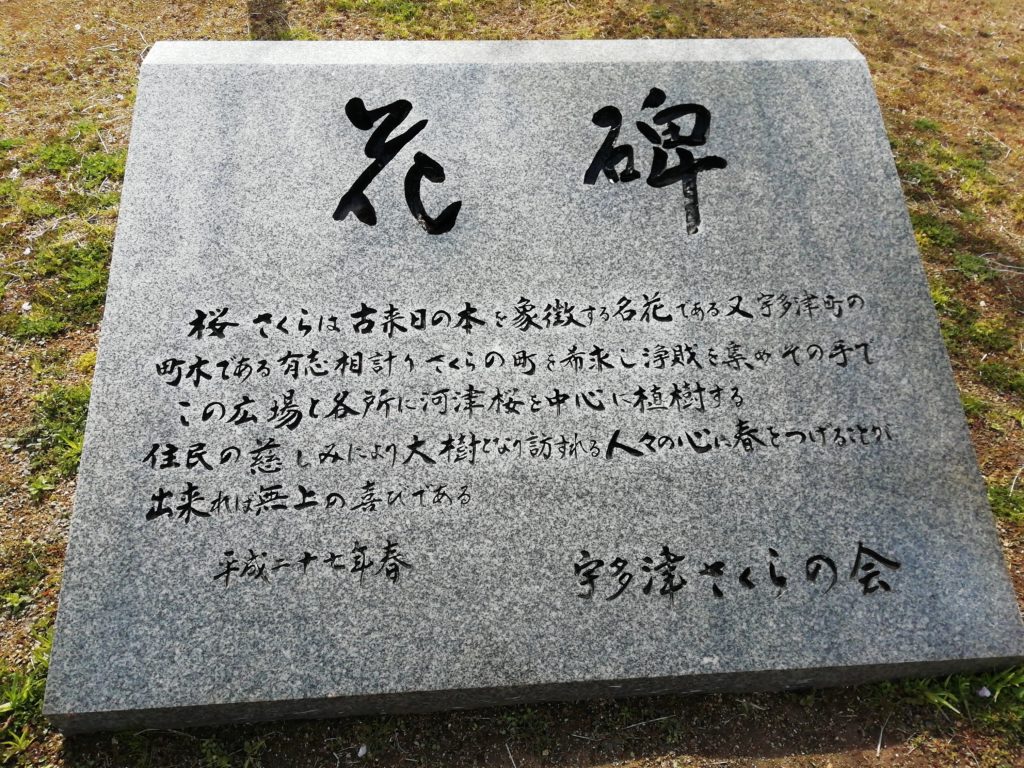 花碑
桜 さくらは古来日の本を象徴する名花である又宇多津町の
町木である有志相計りさくらの町を希求し浄財を集めその手で
この広場と各所に河津桜を中心に植樹する
住民の慈しみにより大樹となり訪ずれる人々の心に春をつげることが
出来れば無上の喜びである
平成二十七年春
宇多津さくらの会